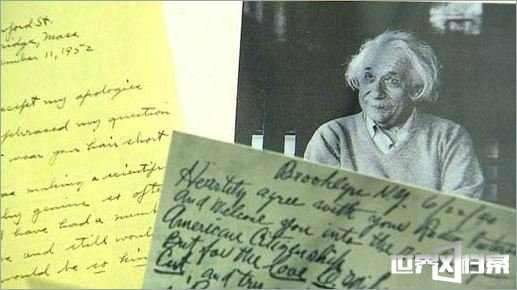 ford St.
ridge, Mass
ember 11, 1952
ccept my apologies
phrased my question
wear your hair short
as making a scientific
genius so often
have had a num
e and still would
would be so kind
Brooklyn N.Y. 6/22/40
Heartily agree with your Radio
And Welcome you into the
American Citizenship
But for the Love
Cut, and
世界X档案